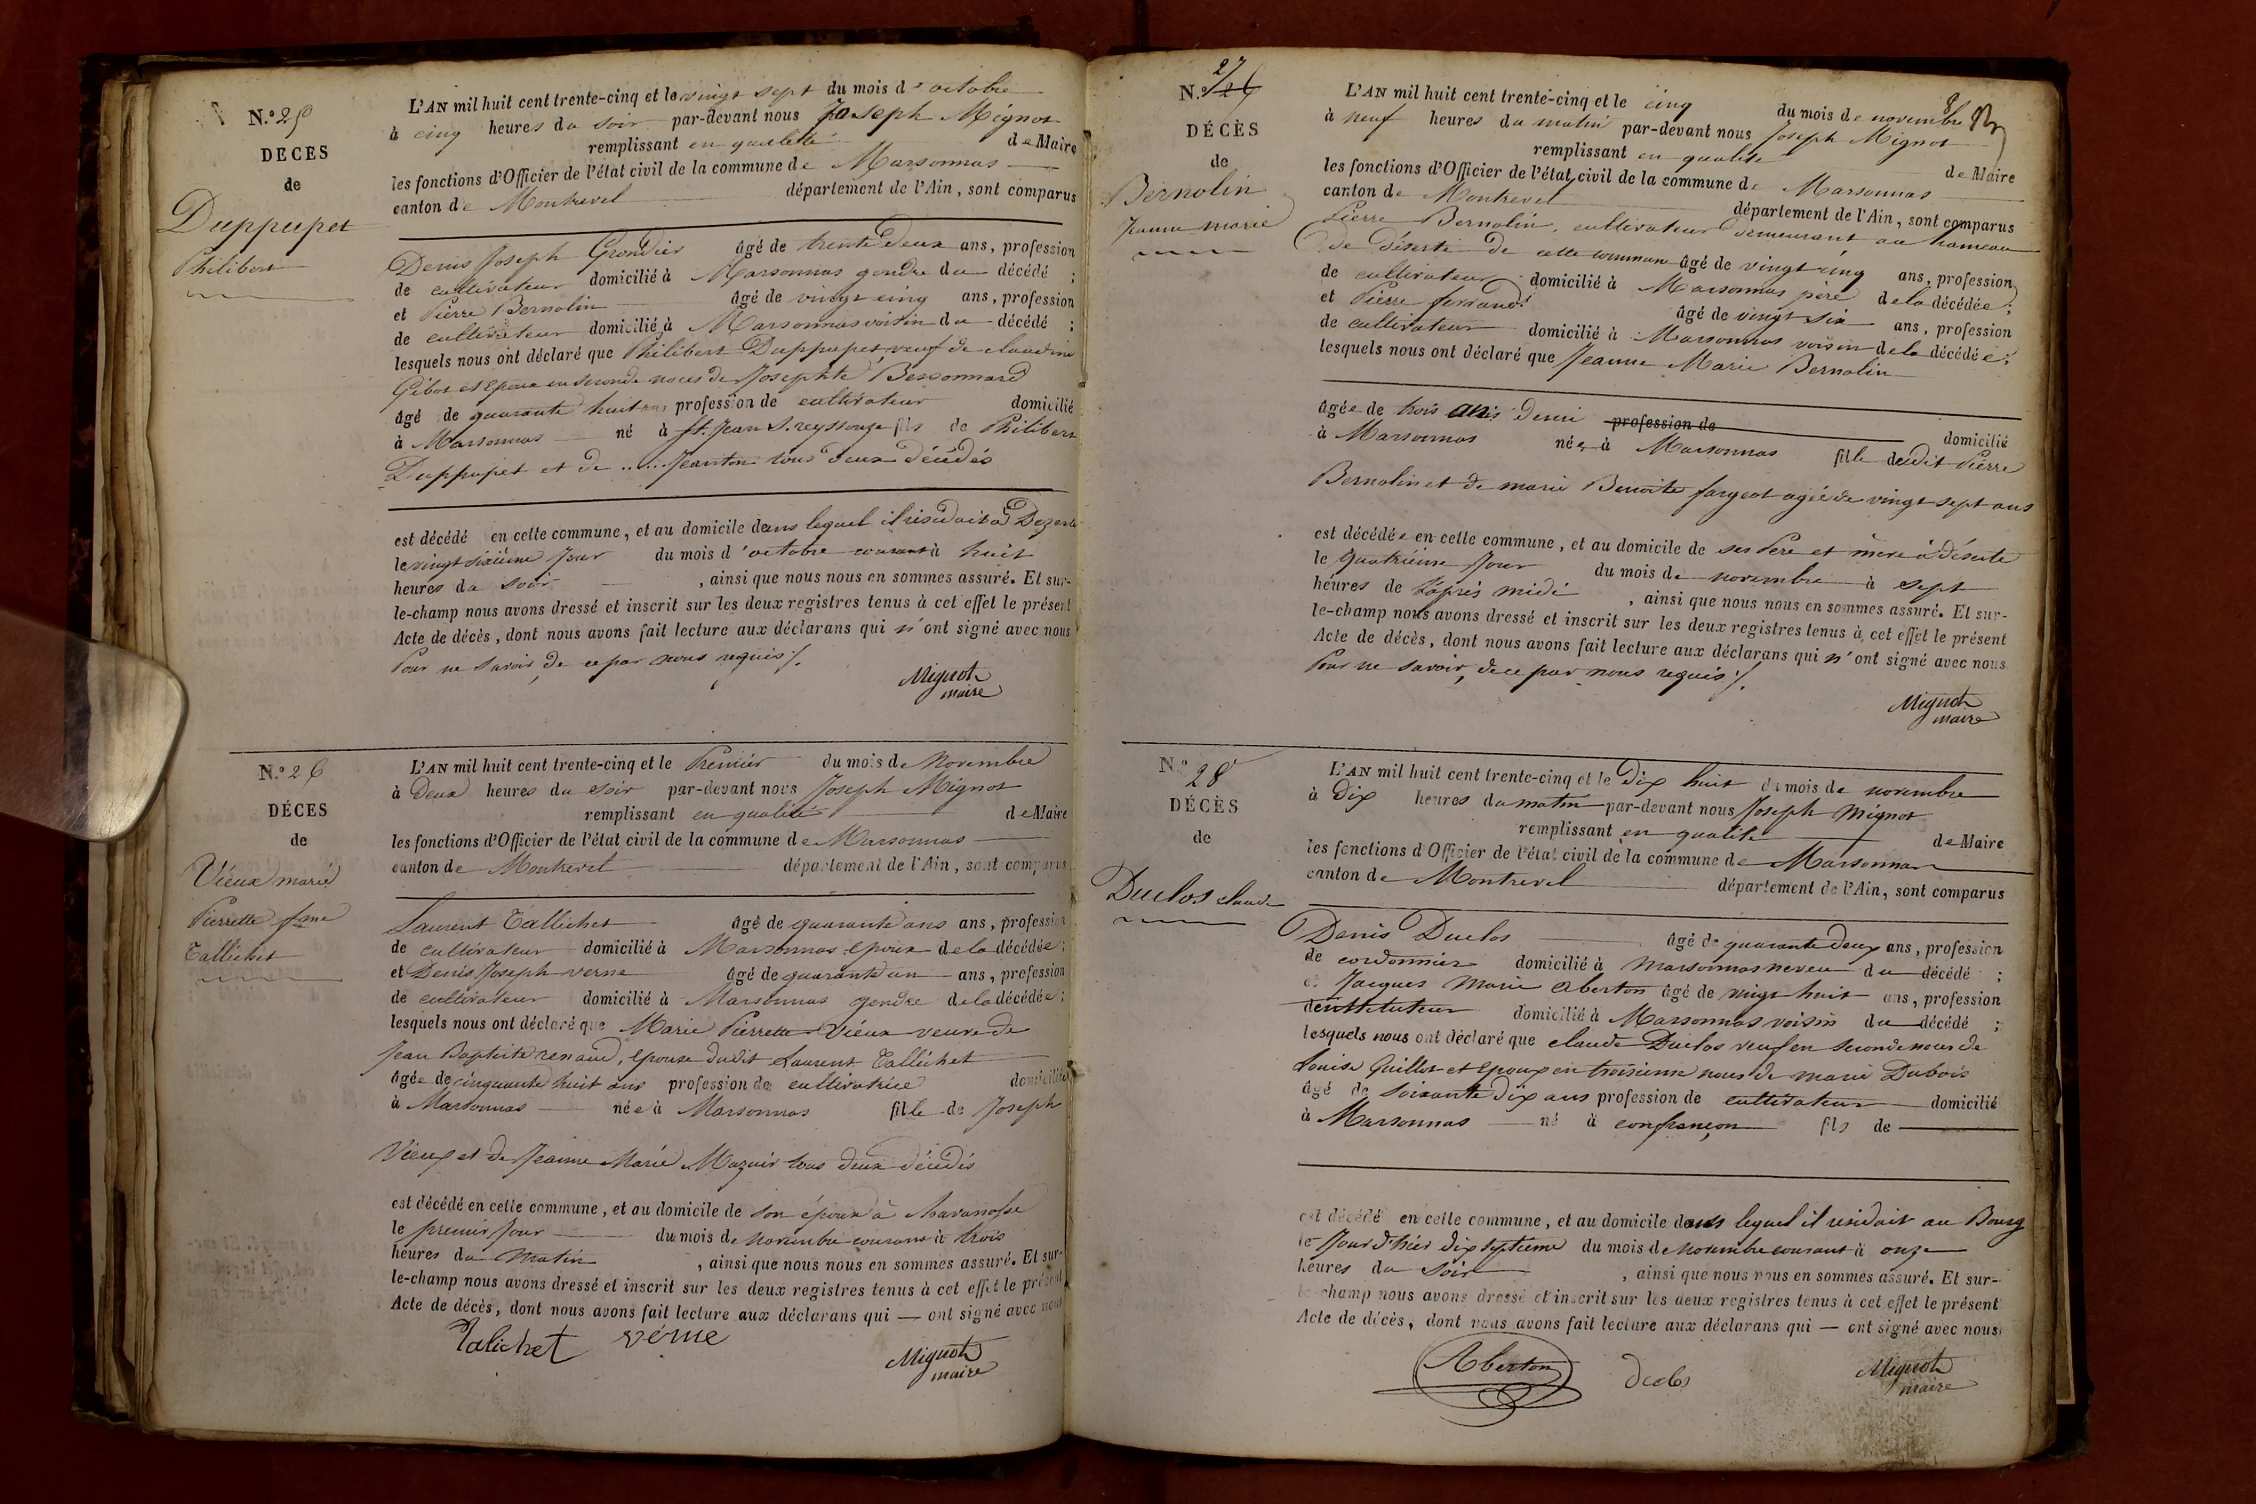 N.° 25
DÉCES
de
Duppupet
Philibert
L'AN mil huit cent trente-cinq et le vingt sept du mois d'octobre
à cinq heures du soir par-devant nous Joseph Mignot
remplissant en qualité de Maire
les fonctions d'Officier de l'état civil de la commune de Marsonnas
canton de Montrevel département de l'Ain, sont comparus
Denis Joseph Grondier âgé de trente deux ans, profession
de cultivateur domicilié à Marsonnas gendre du décédé ;
et Pierre Bernolin âgé de vingt cinq ans, profession
de cultivateur domicilié à Marsonnas voisin du décédé ;
lesquels nous ont déclaré que Philibert Duppupet, veuf de claudine
Gibot et Epoux en seconde noces de Josephte Bessonnard
âgé de quarante huit ans profession de cultivateur domicilié
à Marsonnas né à St. Jean S. reyssouze fils de Philibert
Duppupet et de ..... Jeanton tous deux décédés
est décédé en cette commune, et au domicile dans lequel il residait à Dezerte
le vingt sixième Jour du mois d'octobre courant à huit
heures du soir , ainsi que nous nous en sommes assuré. Et sur-
le-champ nous avons dressé et inscrit sur les deux registres tenus à cet effet le présent
Acte de décès, dont nous avons fait lecture aux déclarans qui n'ont signé avec nous
Pour ne savoir, de ce par nous requis ./.
Mignot
maire
N.° 26
DÉCES
de
Vieux marie
Pierrette fme
Tallichet
L'AN mil huit cent trente-cinq et le Premier du mois de Novembre
à Deux heures du soir par-devant nous Joseph Mignot
remplissant en qualité de Maire
les fonctions d'Officier de l'état civil de la commune de Marsonnas
canton de Montrevel département de l'Ain, sont comparus
Laurent Tallichet âgé de quarante ans ans, profession
de cultivateur domicilié à Marsonnas époux de la décédée ;
et Denis Joseph verne âgé de quarante un ans, profession
de cultivateur domicilié à Marsonnas gendre de la décédée ;
lesquels nous ont déclaré que Marie Pierrette Vieux veuve de
Jean Baptiste renaud, epouse dudit Laurent Tallichet
âgée de cinquante huit ans profession de cultivatrice domicilié
à Marsonnas née à Marsonnas fille de Joseph
Vieux et de Jeanne Marie Mazuir tous deux décédés
est décédé en cette commune, et au domicile de son époux à Chavanosse
le premier Jour du mois de Novembre courant à trois
heures du matin , ainsi que nous nous en sommes assuré. Et sur-
le-champ nous avons dressé et inscrit sur les deux registres tenus à cet effet le présent
Acte de décès, dont nous avons fait lecture aux déclarans qui — ont signé avec nous
Talichet verne
Mignot
maire
27
N.° 26
DÉCÈS
de
Bernolin
Jeanne marie
L'AN mil huit cent trente-cinq et le cinq du mois de novembre
à neuf heures du matin par-devant nous Joseph Mignot
remplissant en qualité de Maire
les fonctions d'Officier de l'état civil de la commune de Marsonnas
canton de Montrevel département de l'Ain, sont comparus
Pierre Bernolin, cultivateur demeurant au hameau
de Déserte de cette commune âgé de vingt cinq ans, profession
de cultivateur domicilié à Marsonnas père de la décédée ;
et Pierre ferrand âgé de vingt six ans, profession
de cultivateur domicilié à Marsonnas voisin de la décédée ;
lesquels nous ont déclaré que Jeanne Marie Bernolin
âgée de trois ans demi profession de domicilié
à Marsonnas née à Marsonnas fille dudit Pierre
Bernolin et de marie Benoite fargeot agée de vingt sept ans
est décédée en cette commune, et au domicile de ses Père et mère à déserte
le quatrième Jour du mois de novembre à sept
heures de l'après midi , ainsi que nous nous en sommes assuré. Et sur-
le-champ nous avons dressé et inscrit sur les deux registres tenus à cet effet le présent
Acte de décès, dont nous avons fait lecture aux déclarans qui n'ont signé avec nous
Pour ne savoir, de ce par nous requis ./.
Mignot
maire
N.° 28
DÉCÈS
de
Duclos claude
L'AN mil huit cent trente-cinq et le Dix huit du mois de novembre
à Dix heures du matin par-devant nous Joseph Mignot
remplissant en qualité de Maire
les fonctions d'Officier de l'état civil de la commune de Marsonnas
canton de Montrevel département de l'Ain, sont comparus
Denis Duclos âgé de quarante deux ans, profession
de cordonnier domicilié à Marsonnas neveu du décédé ;
et Jacques Marie Aberton âgé de vingt huit ans, profession
d'instituteur domicilié à Marsonnas voisin du décédé ;
lesquels nous ont déclaré que claude Duclos veuf en seconde noces de
Louise Guillot et epoux en troisième noces de marie Dubois
âgé de soixante dix ans profession de cultivateur domicilié
à Marsonnas né à confrançon fils de
est décédé en cette commune, et au domicile dans lequel il residait au Bourg
le Jour d'hier dix septième du mois de Novembre courant à onze
heures du soir , ainsi que nous nous en sommes assuré. Et sur-
le-champ nous avons dressé et inscrit sur les deux registres tenus à cet effet le présent
Acte de décès, dont nous avons fait lecture aux déclarans qui — ont signé avec nous
Aberton Duclos
Mignot
maire